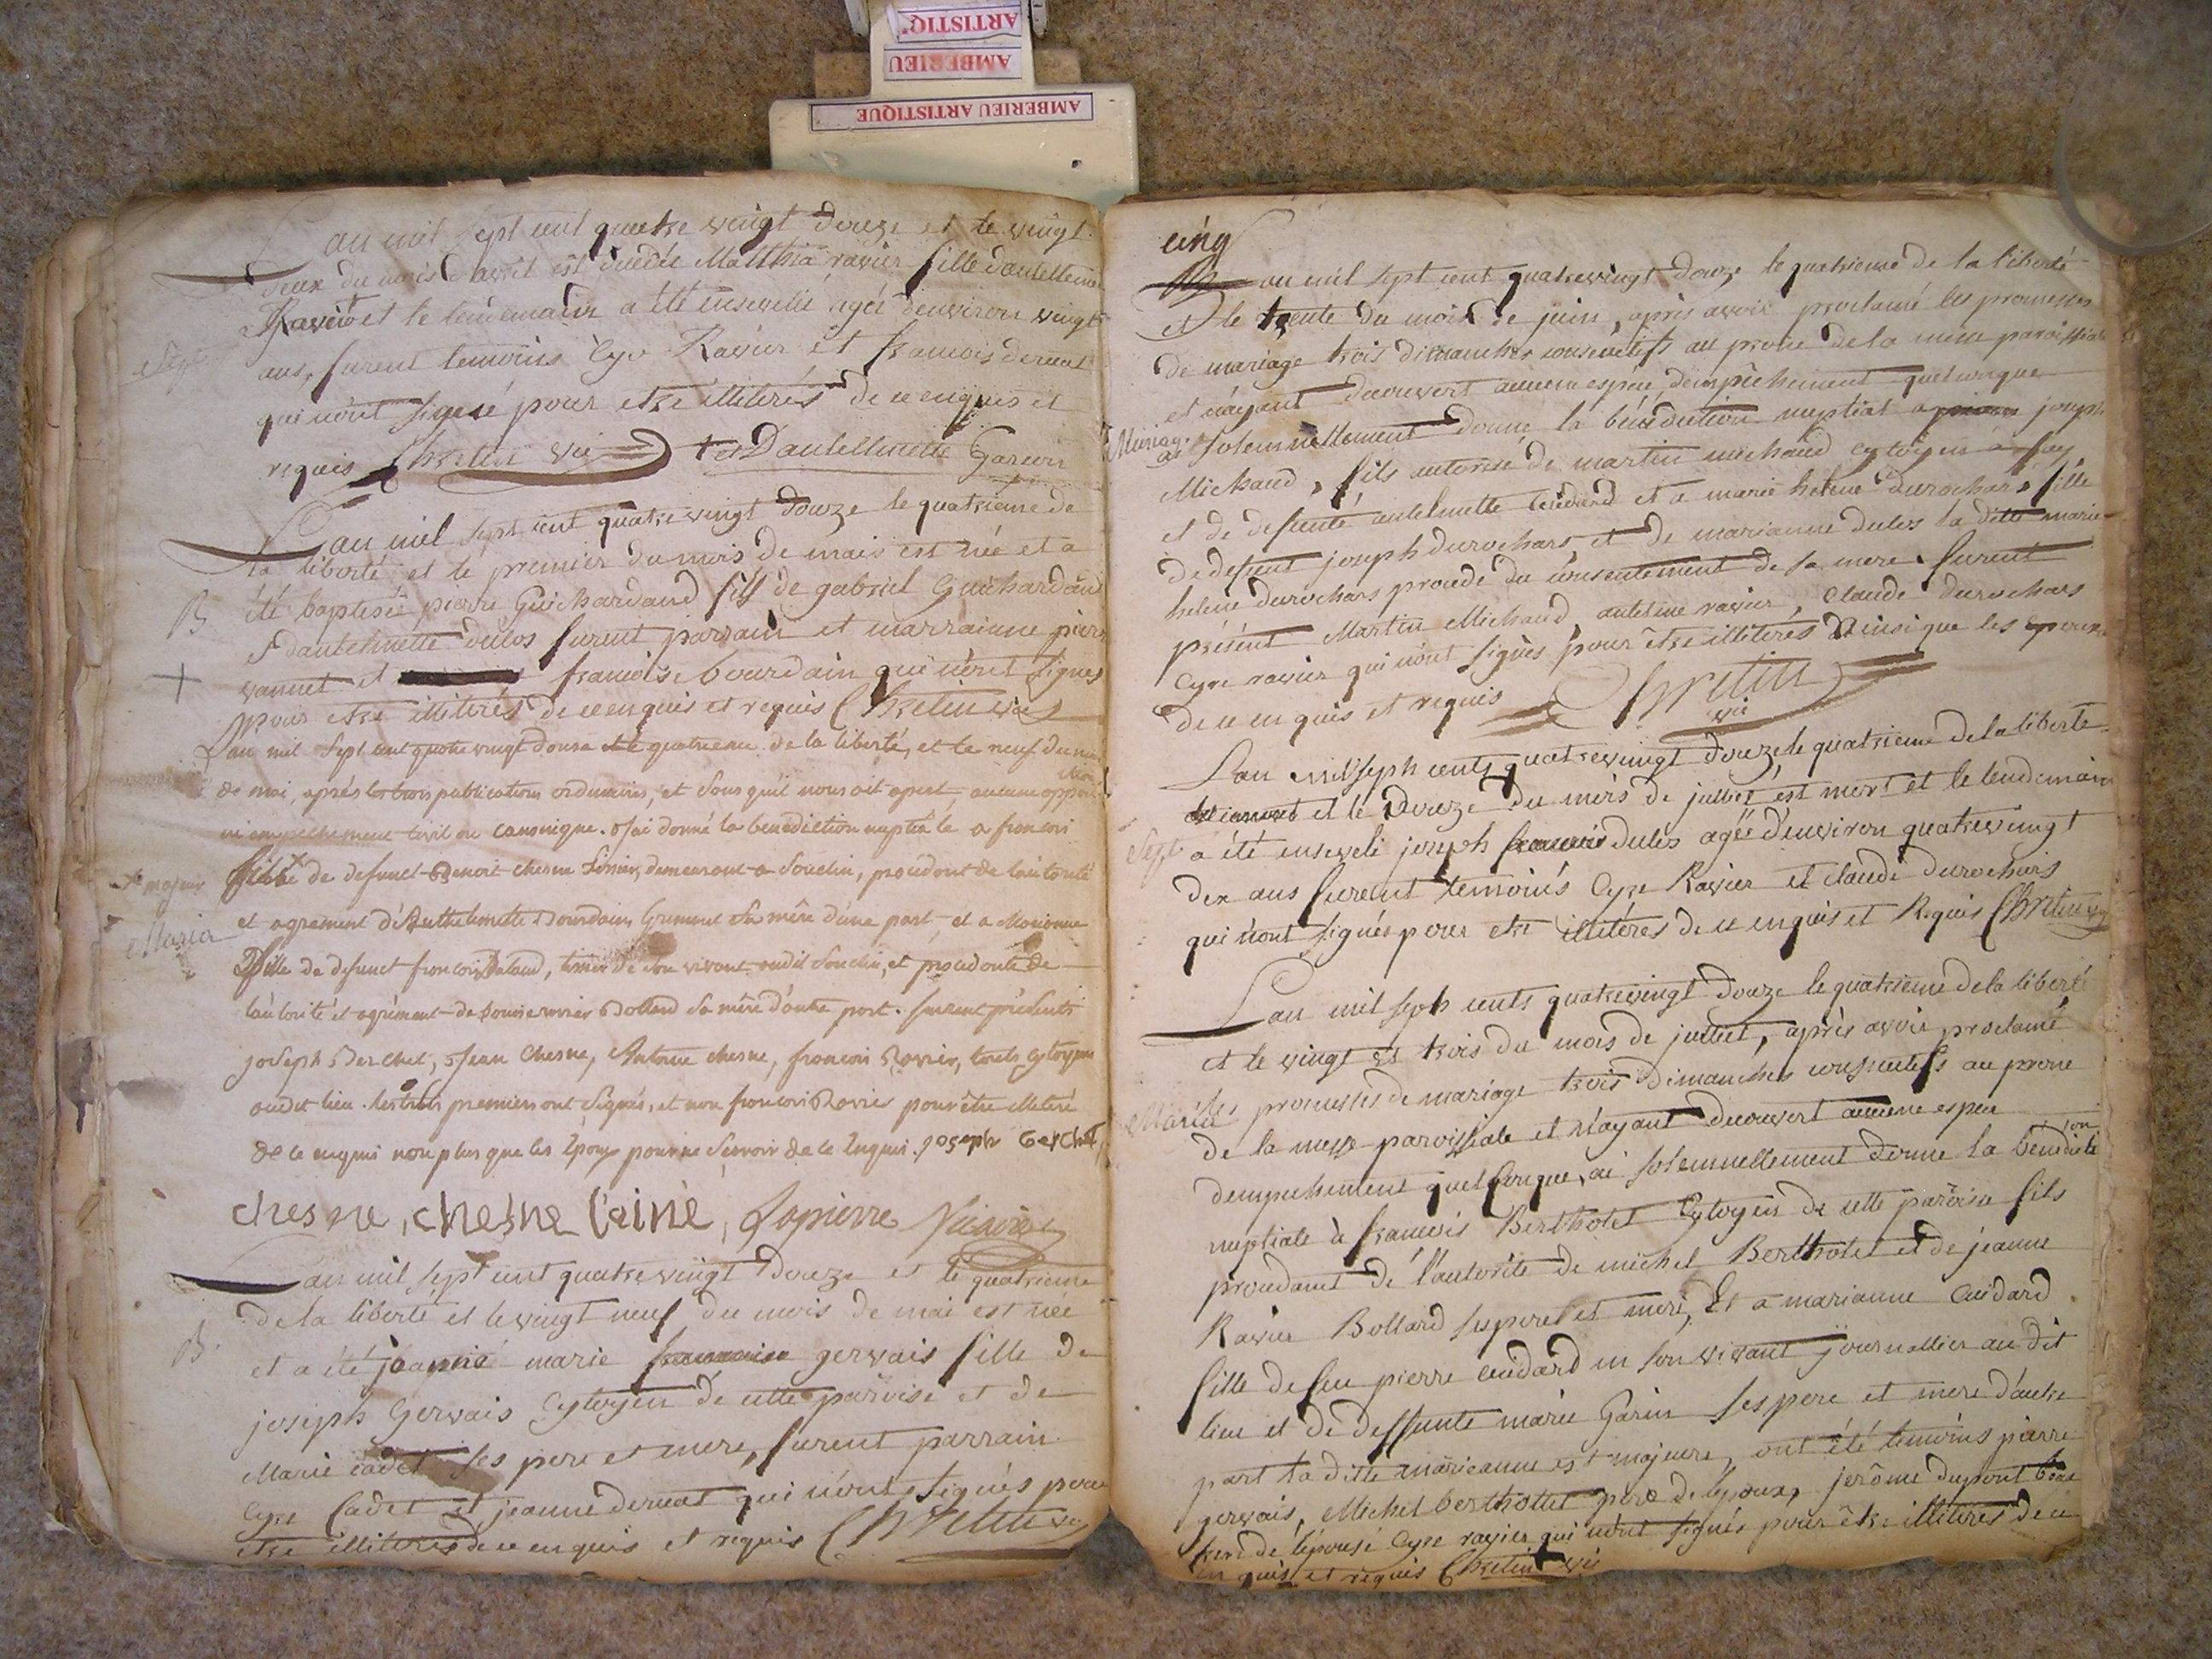 ARTISTIQ'
AMBERIEU
AMBERIEU ARTISTIQUE
Lan mil sept cent quatre vingt douze et le vingt
deux du mois d'avril est décédée Matthia ravier fille dantelleme
Ravier et le lendemain a été ensevelie agée denviron vingt
Sep.
ans, furent temoins Cyr Ravier et francois dernat
qui n'ont signé pour etre illiterés de ce enquis et
requis Chretin vic et Dantellmette Garin
Lan mil sept cent quatre vingt douze le quatrieme de
la liberté et le premier du mois de mais est née et a
B
été baptisée pierre Guichardand fils de gabriel Guichardand
& dantelmette dulos furent parrain et marrainne pierre
vannet et francoise bourdain qui n'ont signes
pour etre illiterés de ce enquis et requis Chretin vic
Lan mil sept cent quatre vingt douze et le quatrieme de la liberté, et le neuf du mois
de mai, après les trois publications ordinaires, et sans qu'il nous ait apert, aucune opposi
tion
ni empechement civil ou canonique. J'ai donné la benediction nuptiale a francois
majeur
fils de defunct Benoit chesne demeurant a Souclin, procedant de l'autorité
et agrement d'Anthelmette Bourdain sa mère d'une part, et a Marianne
Maria
fille de defunct francois de son vivant audit Souclin, et procedante de
l'autorité et agrément de Bolland sa mère d'autre part. furent présents
joseph Berchet, Jean Chesne, Antoine chesne, francois Ravier, touts cytoyens
audit lieu. les trois premiers ont signés, et non francois Ravier pour être illiteré
de ce enquis non plus que les Epoux pour ne sçavoir de ce Enquis. joseph Gerchet
chesne, chesne l'ainé, Lapierre Vicaire
Lan mil sept cent quatre vingt douze et le quatrieme
de la liberté et le vingt neuf du mois de mai est née
B.
et a été marie francoise gervais fille de
joseph Gervais Cytoyen de cette paroise et de
Marie cadet ses pere et mere, furent parrain
Cyre Cadet et jeanne dernat qui n'ont signés pour
etre illiterés de ce enquis et requis Chretin vic
cinq
Lan mil sept cent quatrevingt douze le quatrieme de la liberté
et le trente du mois de juin, après avoir proclamé les promesses
de mariage trois dimanches consecutifs au prone de la messe paroissiale
et n'ayant decouvert aucun espece d'empêchement quelconque
Mariage
ai solemnellement donné la bénédiction nuptial a joseph
Michaud, fils autorisé de martin michaud cytoyen
et de defunte antelmette cuidard et a marie helene durochars fille
de defunt joseph durochars et de marianne dulos la ditte marie
helene durochars procede du consentement de sa mere. furent
présent Martin Michaud, antelme ravier, Claude durochars
Cyre ravier qui n'ont signés pour être illiterés ainsi que les epoux
de ce enquis et requis Chretin
vic
Lan mil seph cents quatrevingt douze le quatrieme de la liberté
et le douze du mois de juillet est mort et le lendemain
Sept
a été enseveli joseph francois dulos agée d'environ quatrevingt
dex ans furent temoins Cyre Ravier et claude durochars
qui n'ont signés pour etre illitéres de ce enquis et Requis Chretin vic
Lan mil seph cents quatrevingt douze le quatrieme de la liberté
et le vingt et trois du mois de juillet, après avoir proclamé
Maria
les promesses de mariage trois dimanches consecutifs au prone
de la messe paroissiale et n'ayant decouvert aucune espece
dempechement quelconque, ai solemnellement donne la benedicti
on
nuptiale à francois Bertholet Cytoyen de cette paroise fils
procedant de l'autorite de michel Bertholet et de jeanne
Ravier Bollard ses pere et mere, Et a marianne Cuidard
fille de feu pierre cuidard en son vivant journallier au dit
lieu et de deffunte marie Garin ses pere et mere d'autre
part la ditte marieanne est majeure, ont été temoins pierre
gervais, Michel bertholet pere de lepoux, jerôme dupont beau
frere de l'épouse Cyre ravier qui n'ont signés pour être illiteres de ce
enquis et requis Chretin vic